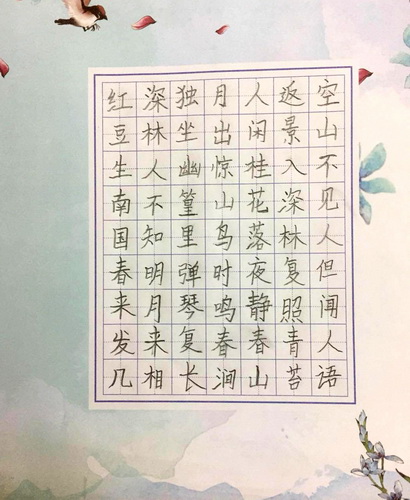 空山不见人但闻人语
返景入深林复照青苔
人闲桂花落夜静春山
月出惊山鸟时鸣春涧
独坐幽篁里弹琴复长
深林人不知明月来相
红豆生南国春来发几